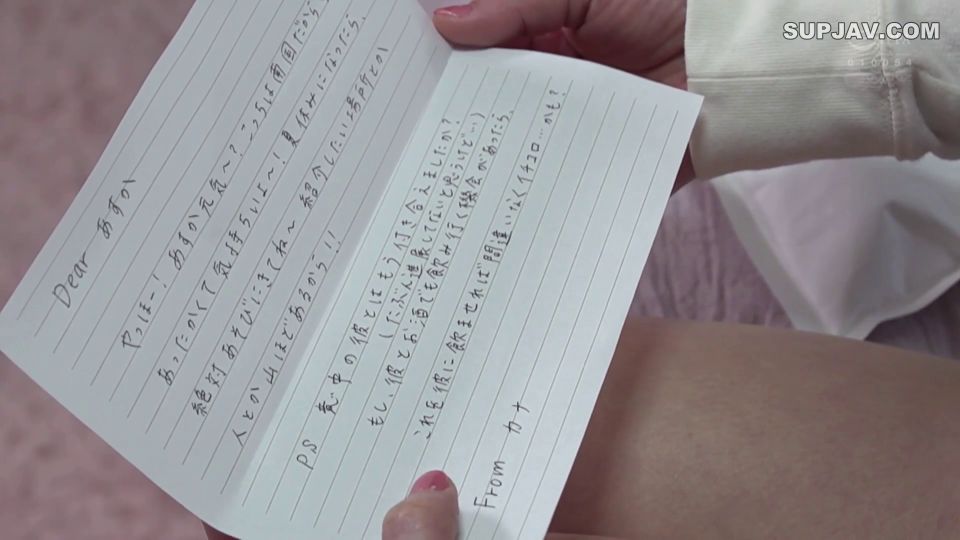 SUPJAV.COM
010054
Dear あすか
やっほー！あすか元気〜？こっちは南国だから
あったかくて気持ちいいよ〜！夏休みになったら
絶対あそびにきてね〜 紹介したい場所とか
人とか山ほどあるから！！
PS 意中の彼とはもう付き合えましたか？
（たぶん進展してないと思うけど…）
もし、彼とお酒でも飲み行く機会があったら、
これを彼に飲ませれば間違いなくイチコロ…かも？
From カナ